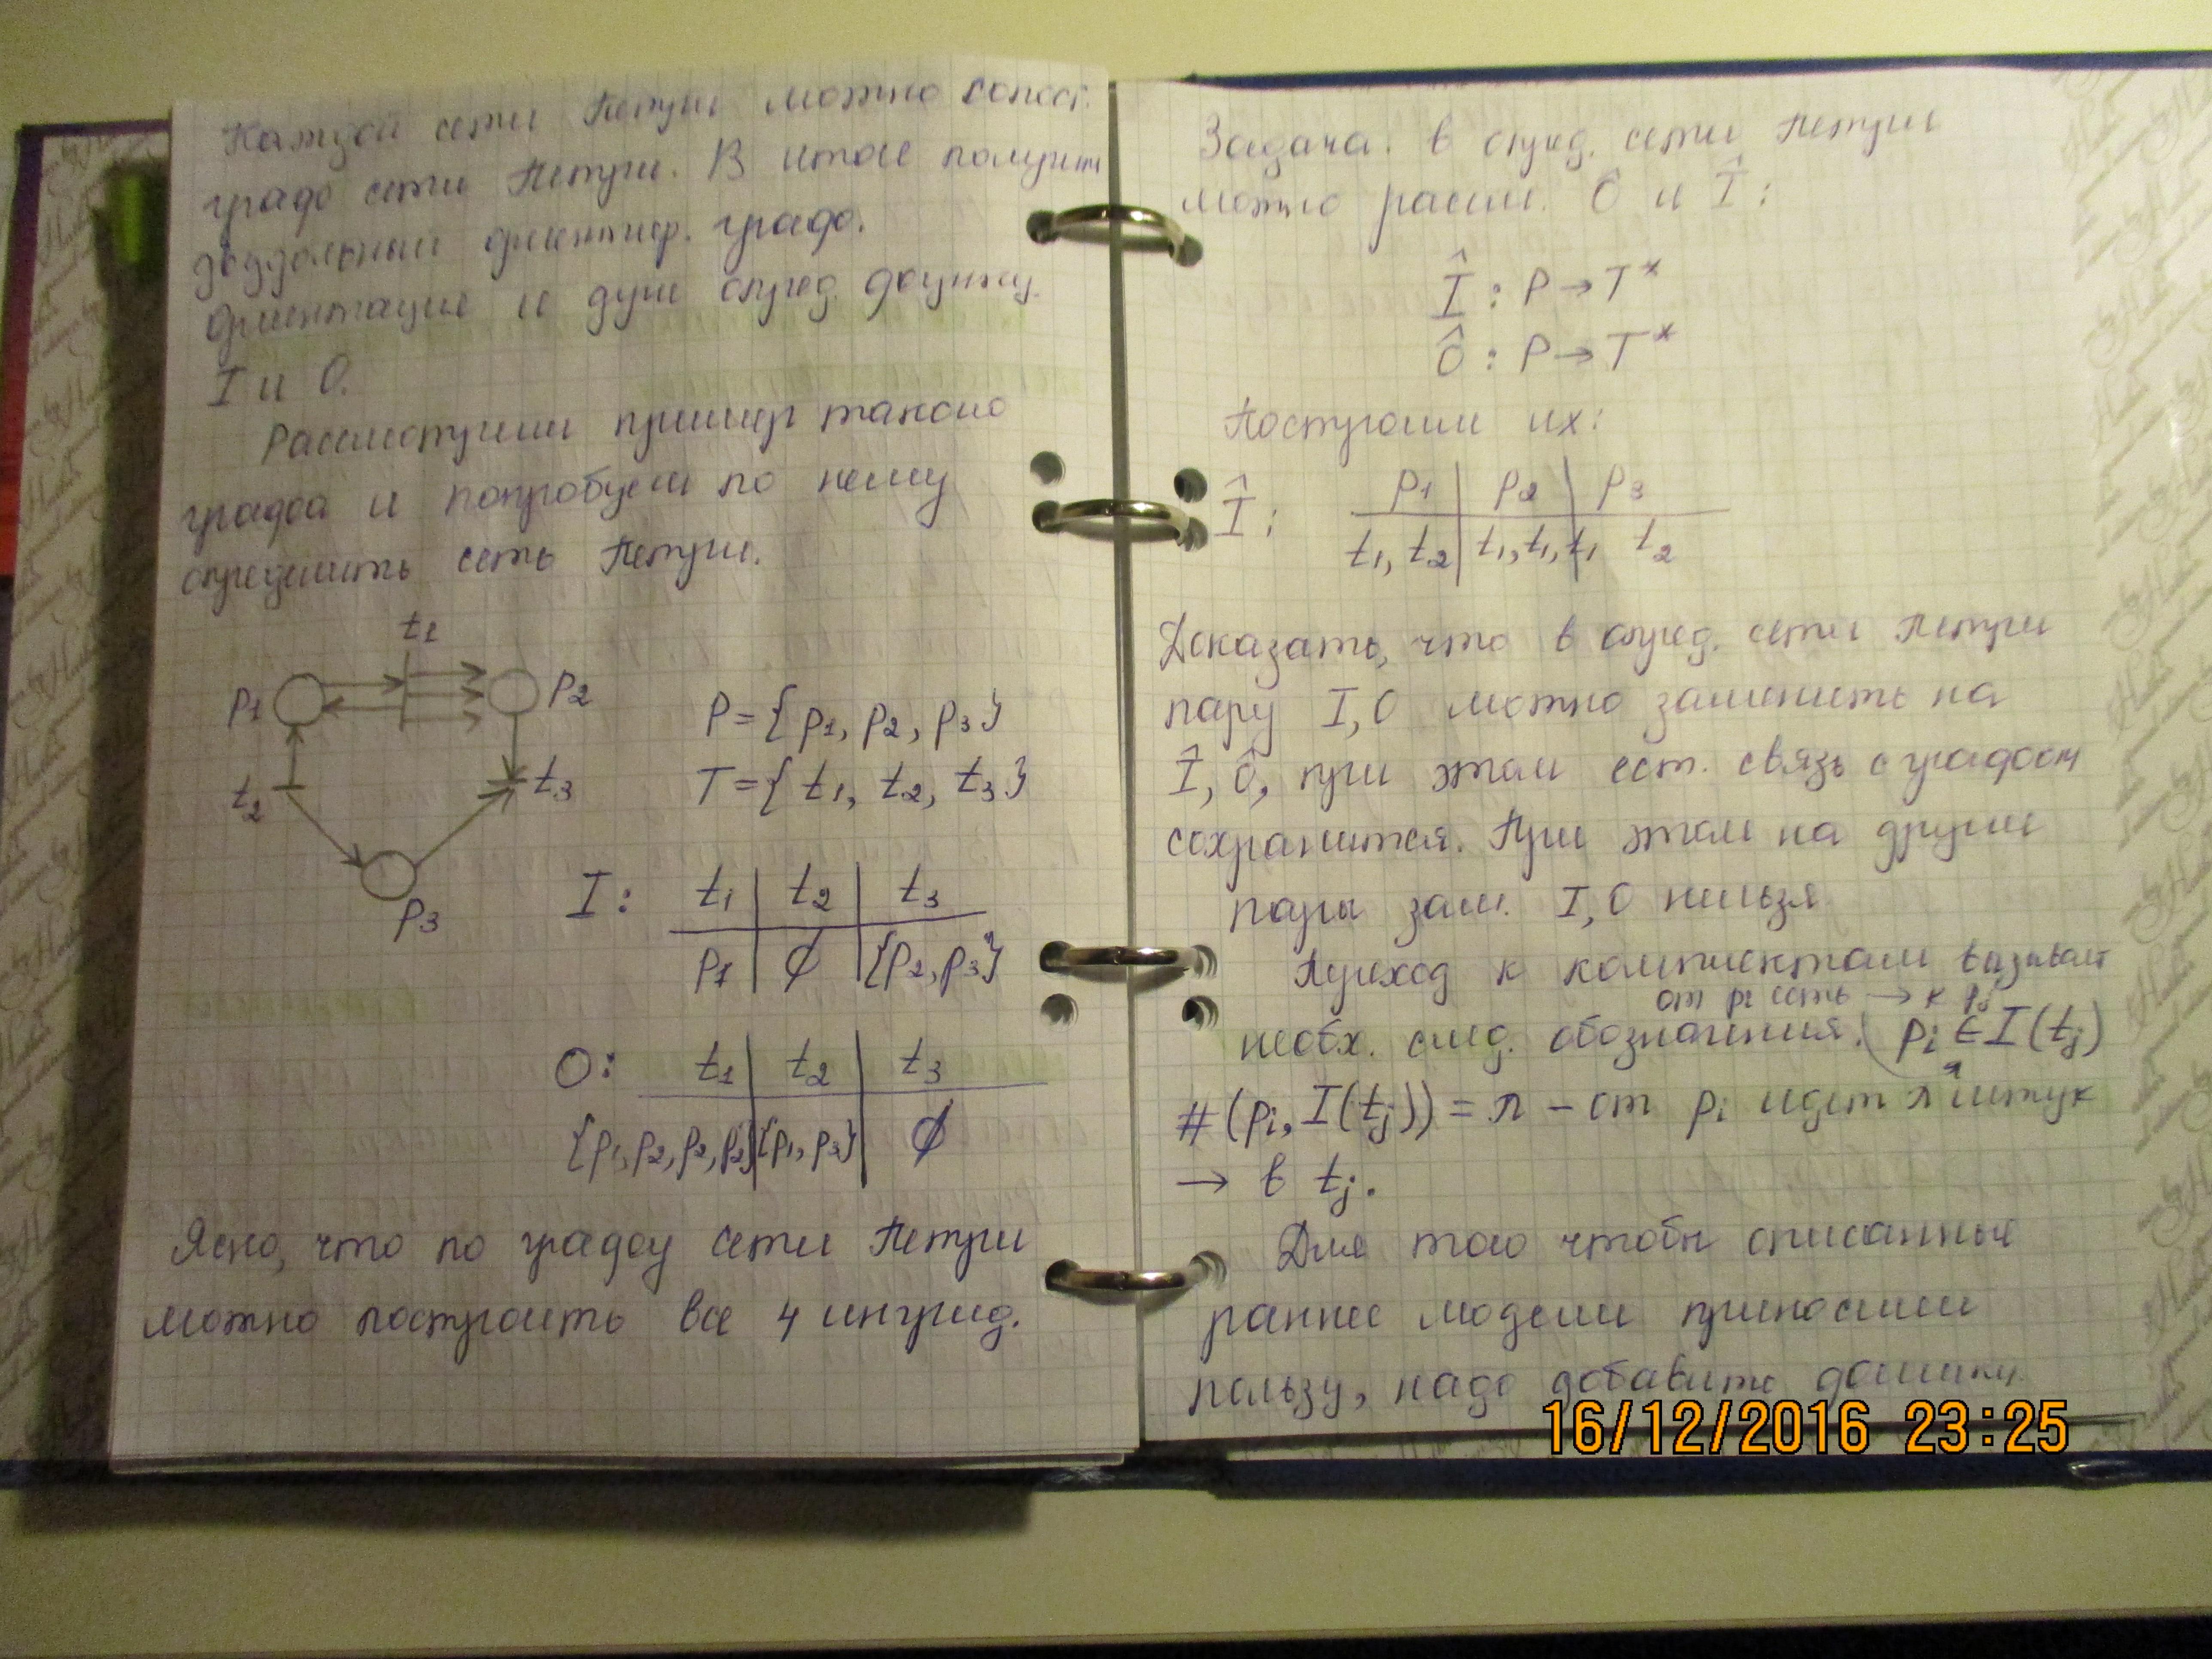 Каждой сети Петри можно сопост.
граф сети Петри. В итоге получит
двудольный ориентир. граф.
Ориентация и дуги опред. функц.
I и O.
Рассмотрим пример такого
графа и попробуем по нему
определить сеть Петри.
t1
p1 p2
t2 t3
p3
P={p1, p2, p3}
T={t1, t2, t3}
I: t1 | t2 | t3
p1 | ∅ | {p2, p3}
O: t1 | t2 | t3
{p1, p2, p2, p2} | {p1, p3} | ∅
Ясно, что по графу сети Петри
можно построить все 4 ингрид.
Задача. в опред. сети Петри
можно расши. Ô и Î:
Î : P → T*
Ô : P → T*
Построим их:
Î: p1 | p2 | p3
t1, t2 | t1, t1, t1 | t2
Доказать, что в опред. сети Петри
пару I, O можно заменить на
Î, Ô, при этом ест. связь с графом
сохранится. При этом на другие
пары зам. I, O нельзя
Переход к комплектам вызывает
от pi есть → к tj
необх. след. обозначения. (pi ∈ I(tj)
#(pi, I(tj)) = n – от pi идет n штук
→ в tj.
Для того чтобы описанные
ранее модели приносили
пользу, надо добавить
16/12/2016 23:25